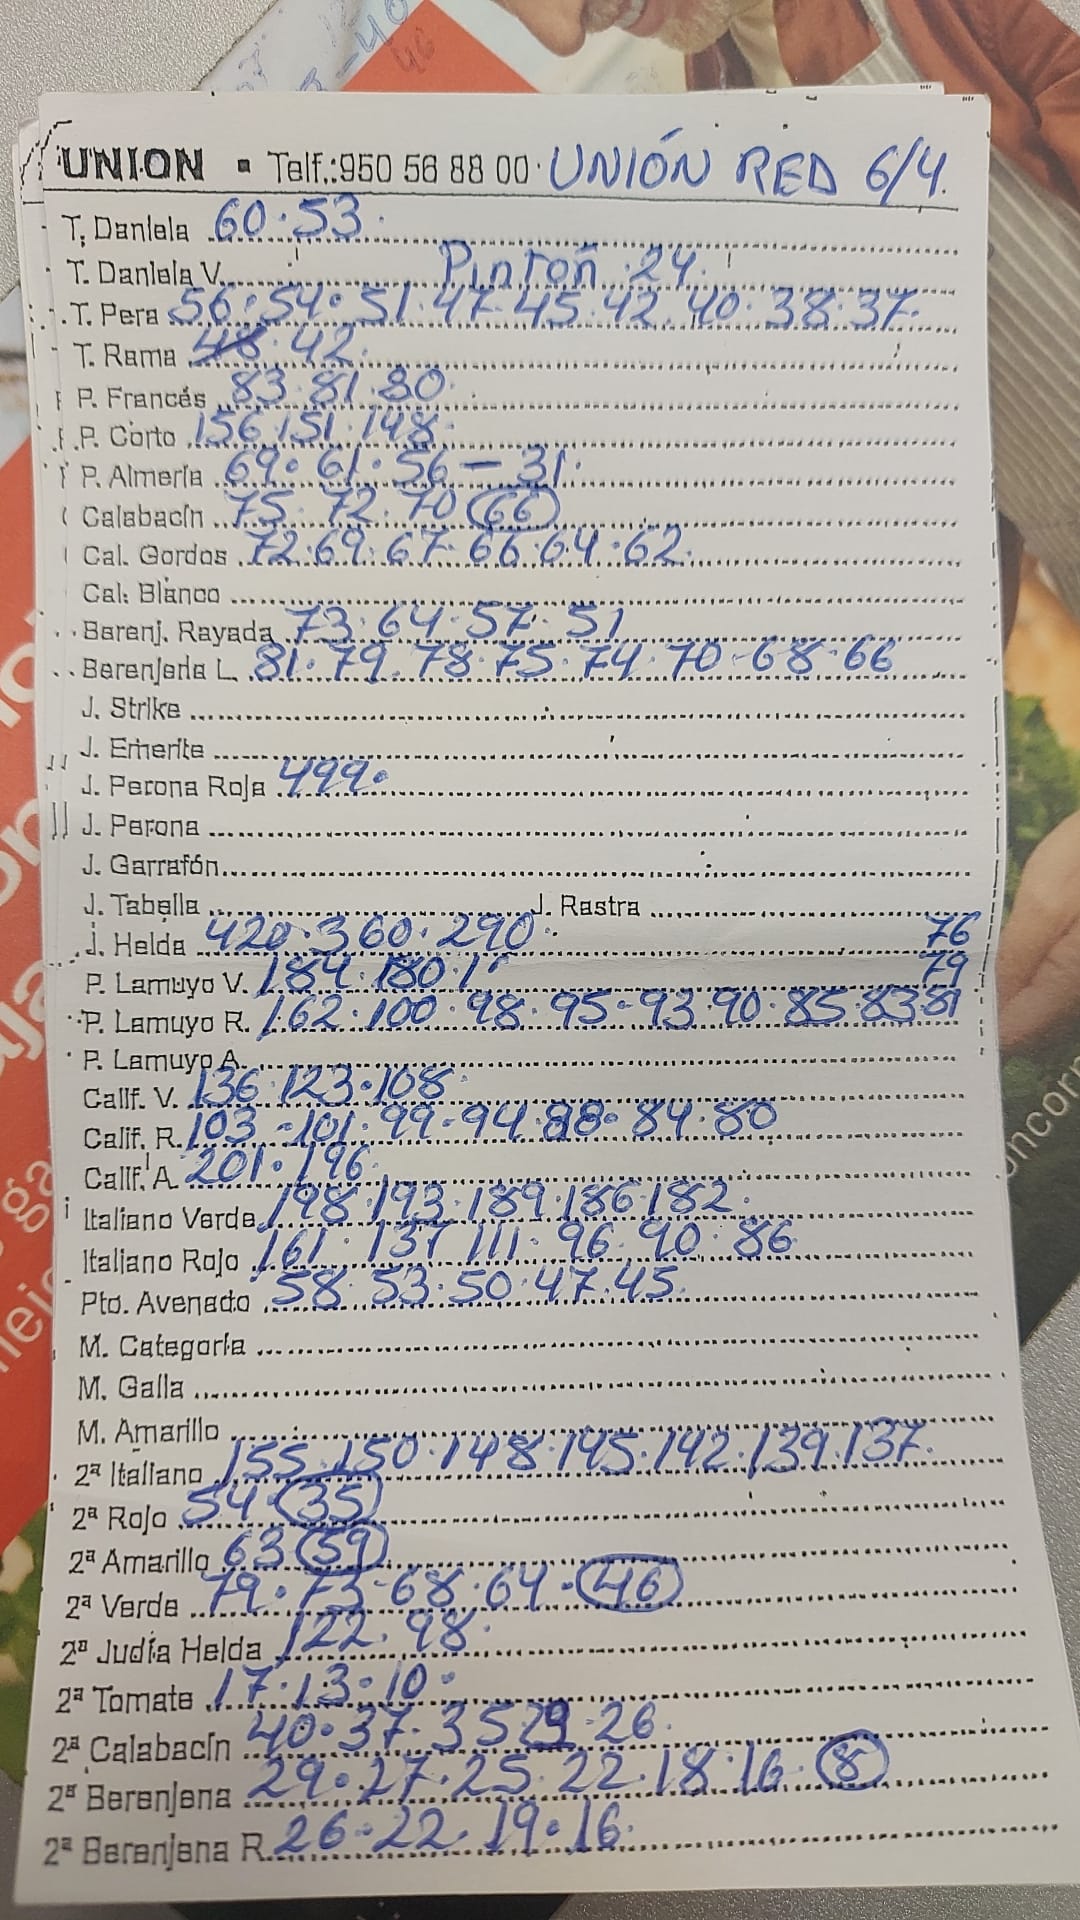 UNION ▪ Telf.:950 56 88 00 · UNIÓN RED 6/4.
T. Daniela 60·53·
T. Daniela V. Pintón 24.
T. Pera 56·54·51·47·45·42·40·38·37·
T. Rama 48·42·
P. Francés 83·81·80·
P. Corto 156·151·148·
P. Almería 69·61·56-31·
Calabacín 75·72·70 66
Cal. Gordos 72·69·67·66·64·62·
Cal. Blanco
Berenj. Rayada 73·64·57·51
Berenjena L. 81·79·78·75·74·70·68·66
J. Strike
J. Emerite
J. Perona Roja 499·
J. Perona
J. Garrafón
J. Tabella J. Rastra
J. Helda 420·360·290· 76
P. Lamuyo V. 184·180· 79
P. Lamuyo R. 162·100·98·95·93·90·85·83 81
P. Lamuyo A.
Calif. V. 136·123·108·
Calif. R. 103·101·99·94·88·84·80
Calif. A. 201·196·
Italiano Verde 198·193·189·186·182·
Italiano Rojo 161·137·111·96·90·86
Pto. Avenado 58·53·50·47·45·
M. Categoría
M. Galia
M. Amarillo
2ª Italiano 155·150·148·145·142·139·137·
2ª Rojo 54·35
2ª Amarillo 63 59
2ª Verde 79·73·68·64·46
2ª Judía Helda 122·98·
2ª Tomate 17·13·10·
2ª Calabacín 40·37·35 29·26·
2ª Berenjena 29·27·25·22·18·16·8
2ª Berenjena R. 26·22·19·16·